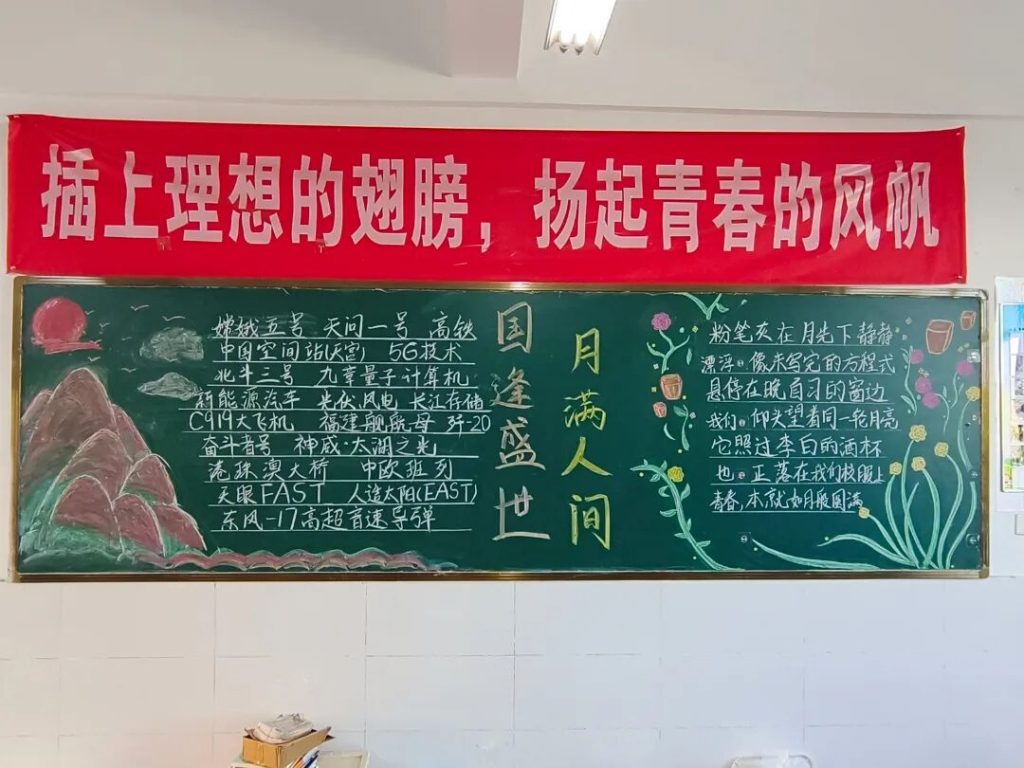 插上理想的翅膀，扬起青春的风帆
嫦娥五号 天问一号 高铁
中国空间站(天宫) 5G技术
北斗三号 九章量子计算机
新能源汽车 光伏风电 长江存储
C919大飞机 福建舰航母 歼-20
奋斗者号 神威·太湖之光
港珠澳大桥 中欧班列
天眼FAST 人造太阳(EAST)
东风-17高超音速导弹
国逢盛世
月满人间
粉笔灰在月光下静静
漂浮 像未写完的方程式
悬停在晚自习的窗边
我们 仰头望着同一轮月亮
它照过李白的酒杯
也 正落在我们校服上
青春,本就如月般圆满